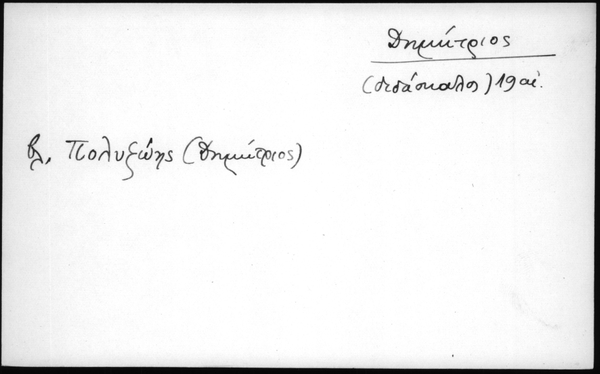 Δημήτριος
(διδάσκαλος) 19 αἰ.
βλ. Πολυζώης (Δημήτριος)